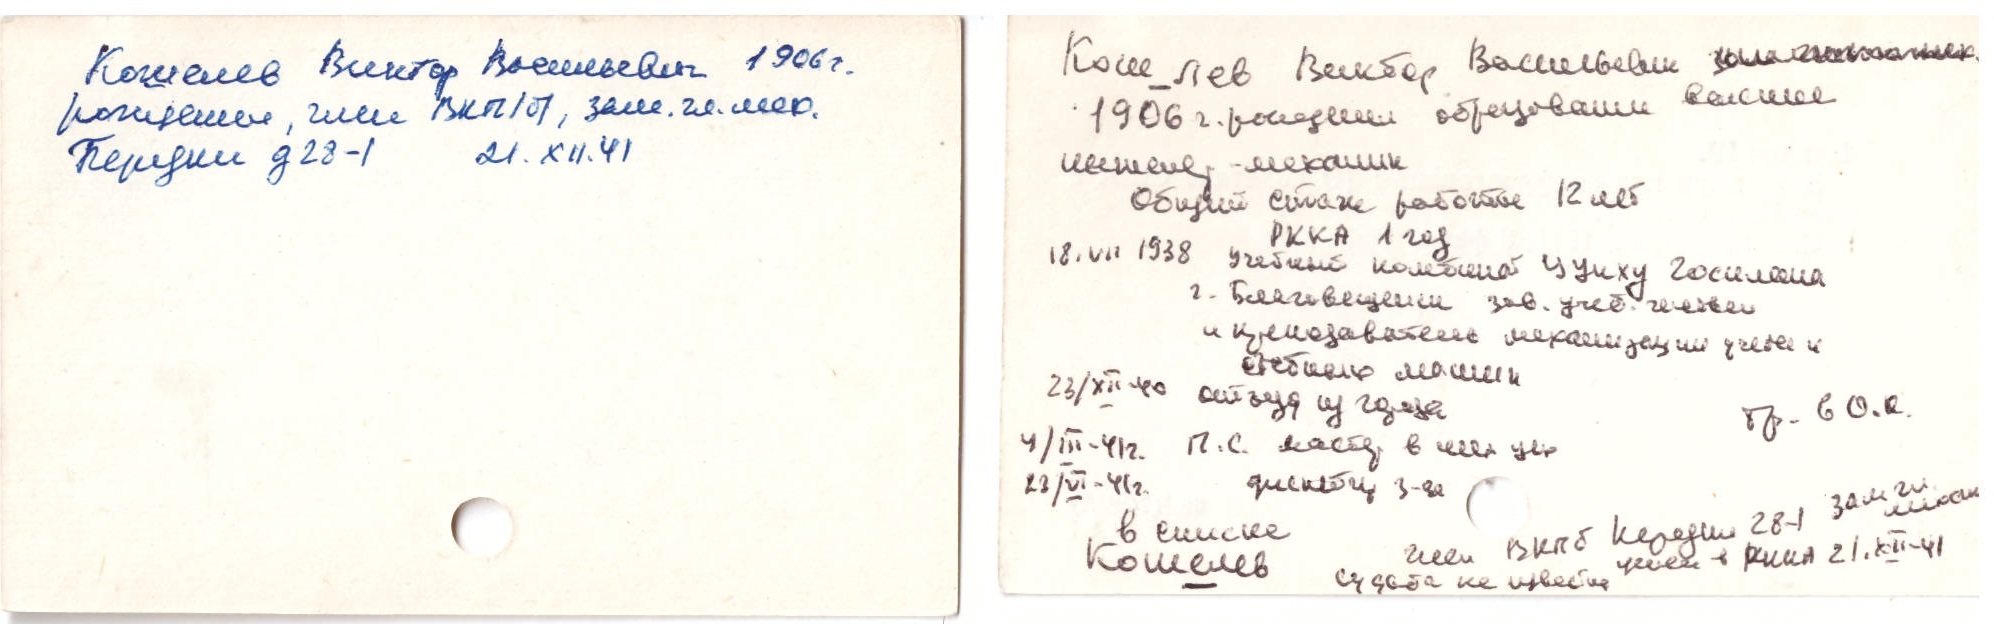 Кошелев Виктор Васильевич 1906 г.
рождения, член ВКП/б/, зам. гл. мех.
Передки д 28-1 21. XII. 41
Кош_лев Виктор Васильевич
1906 г. рождения образование высшее
инженер-механик
Общий стаж работы 12 лет
РККА 1 год
18. VII 1938 учебный комбинат ЦУНХУ Госплана
г. Благовещенск зав. учеб. частью
и преподаватель механизации учета и
счетных машин
23/XII-40 отъезд из города
тр. в О.К.
4/III-41 г. П.С. мастер в мех цех
23/VI-41 г. диспетчер з-да
в списке
Кошелев
член ВКПб Передки 28-1 зам гл. механик
ушел в РККА 21. XII-41
судьба не известна